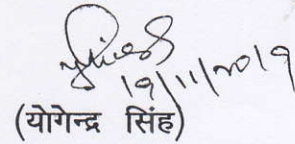 19/11/2019
(योगेन्द्र सिंह)